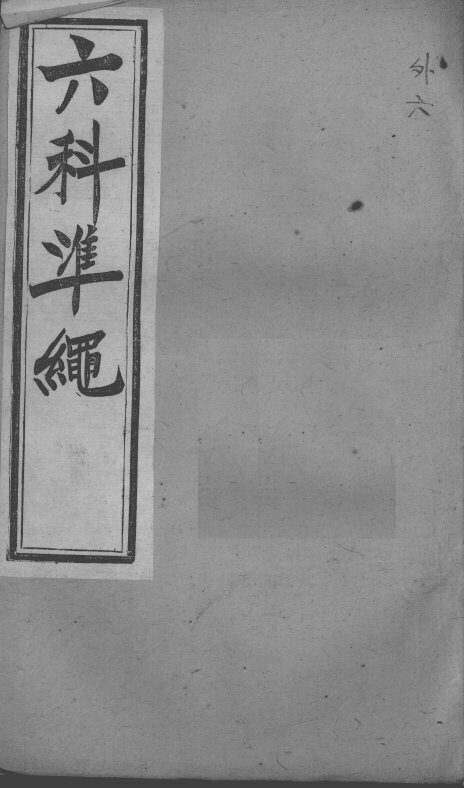 外六
六科準繩